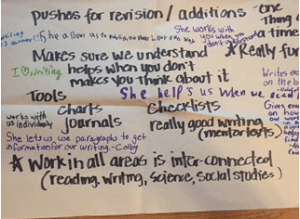 pushes for revision / additions - one
thing
a time
She works with
you when you
don't understand
Makes sure we understand
★ Really fun
I ♡ writing
helps when you don't
makes you think about it
Writes
on the b
Tools
She help's us when we
charts
Checklists
works with
us individually
journals
really good writing
(mentor texts)
She lets us use paragraphs to get
information for our writing - Coley
★ Work in all areas is inter-connected
(reading, writing, science, social studies)